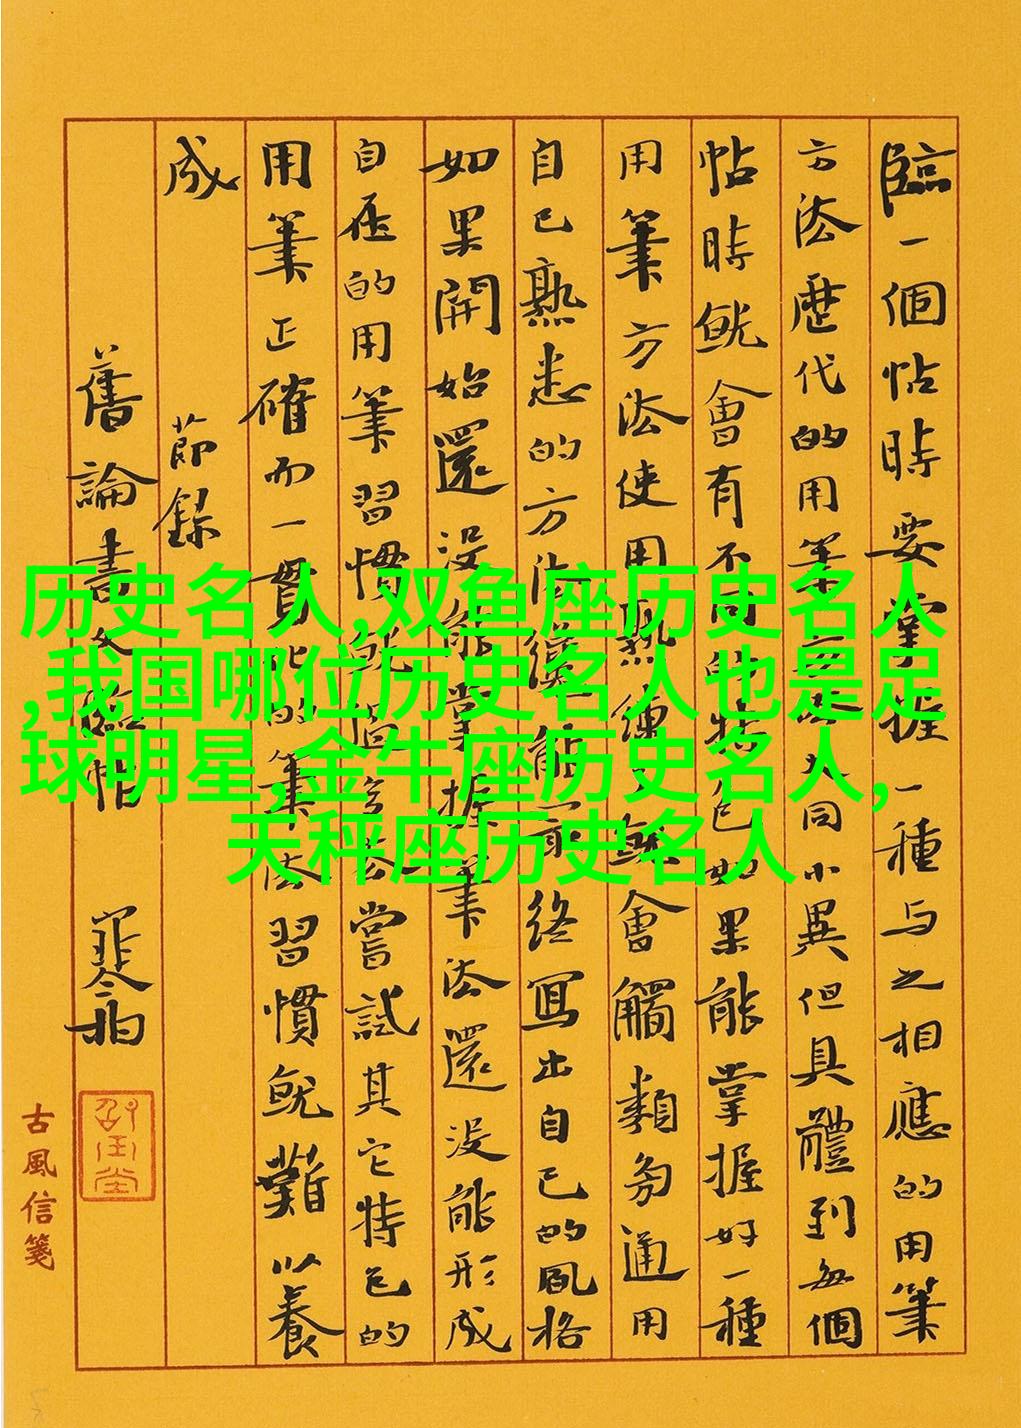 臨一個帖時要掌握一種与之相應的用筆
方法歷代的用筆方法大同小異但具體到每個
帖時就會有不同的特色如果能掌握好一種
用筆方法使用熟練了就會觸類旁通用
自己熟悉的方法纔能最終寫出自己的風格
如果開始還没能掌握筆法還没能形成
自在的用筆習慣就嘗試其它特色的
用筆正確而一貫性的筆法習慣就難以養
成 節錄
舊論書文臨帖
古風信箋
历史名人,双鱼座历史名人
,我国哪位历史名人也是足
球明星,金牛座历史名人,
天秤座历史名人